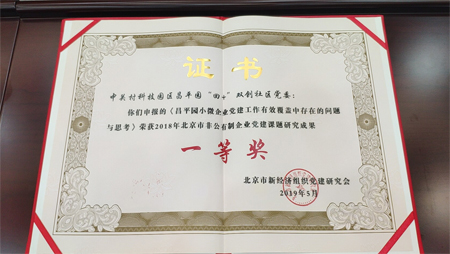 证书
中关村科技园区昌平园“回+”双创社区党委：
你们申报的《昌平园小微企业党建工作有效覆盖中存在的问题
与思考》荣获2018年北京市非公有制企业党建课题研究成果
一等奖
北京市新经济组织党建研究会
2019年5月